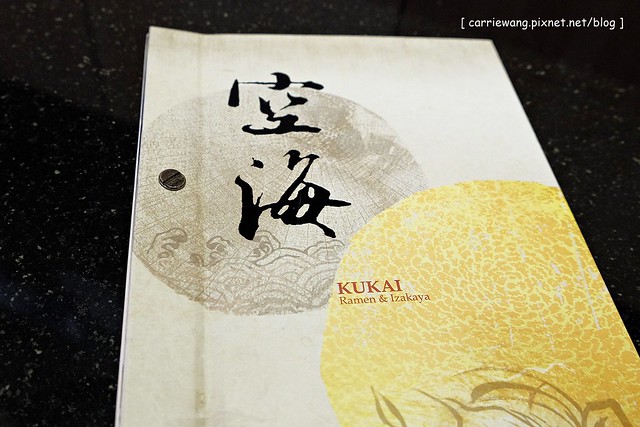 [ carriewang.pixnet.net/blog ]
空海
KUKAI
Ramen & Izakaya